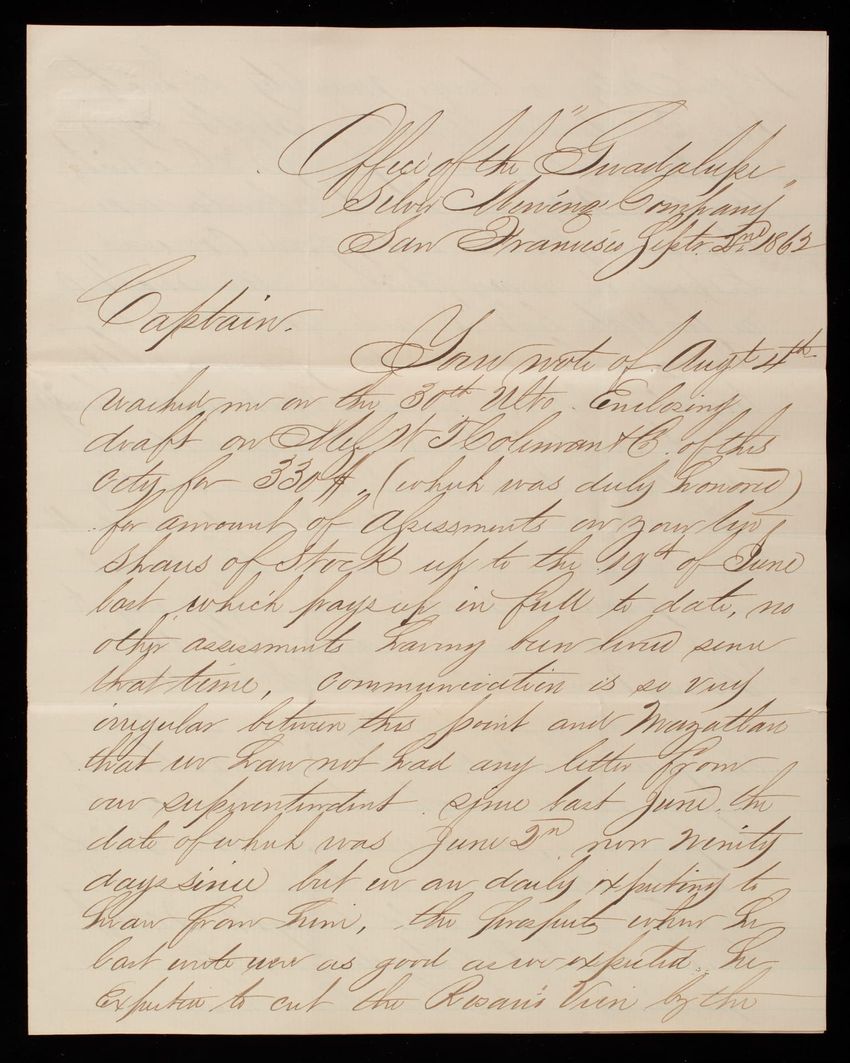 Office of the "Guadalupe
Silver Mining Company"
San Francisco Septr. 2nd 1863
Captain.
Your note of Augt 4th
reached me on the 30th Ulto. Enclosing
draft on Mess W T Coleman & Co. of this
City for 330$, (which was duly honored)
for amount of Assessments on your
shares of Stock up to the 19th of June
last which pays up in full to date, no
other assessments having been levied since
that time, Communication is so very
irregular between this point and Mazatlan
that we have not had any letter from
our superintendent since last June, the
date of which was June 2nd now ninety
days since but we are daily expecting to
hear from him, the prospects when he
last wrote were as good as we expected. He
Expected to cut the Rosario Vein by the